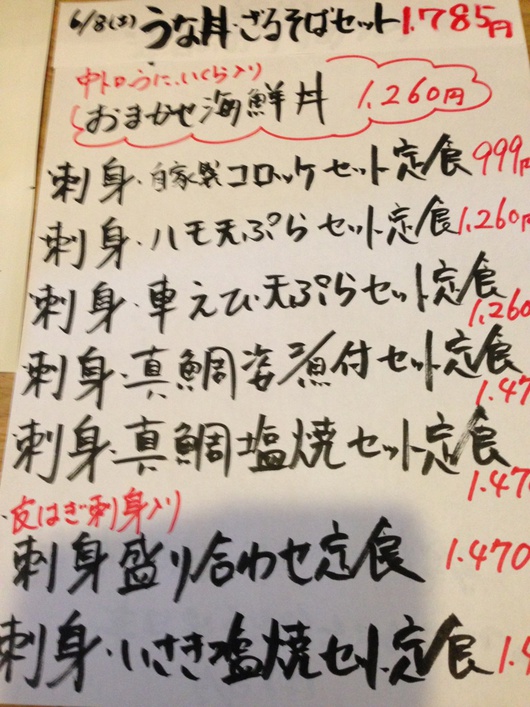 6/8(土) うな丼・ざるそばセット 1.785円
中トロ、うに、いくら入り
おまかせ海鮮丼 1.260円
刺身・自家製コロッケセット定食 999円
刺身・ハモ天ぷらセット定食 1.260円
刺身・車えび天ぷらセット定食
1.260
刺身・真鯛姿煮付セット定食
1.47
刺身・真鯛塩焼セット定食
1.47
皮はぎ刺身入り
刺身盛り合わせ定食 1.470
刺身・いさき塩焼セット定食 1.4